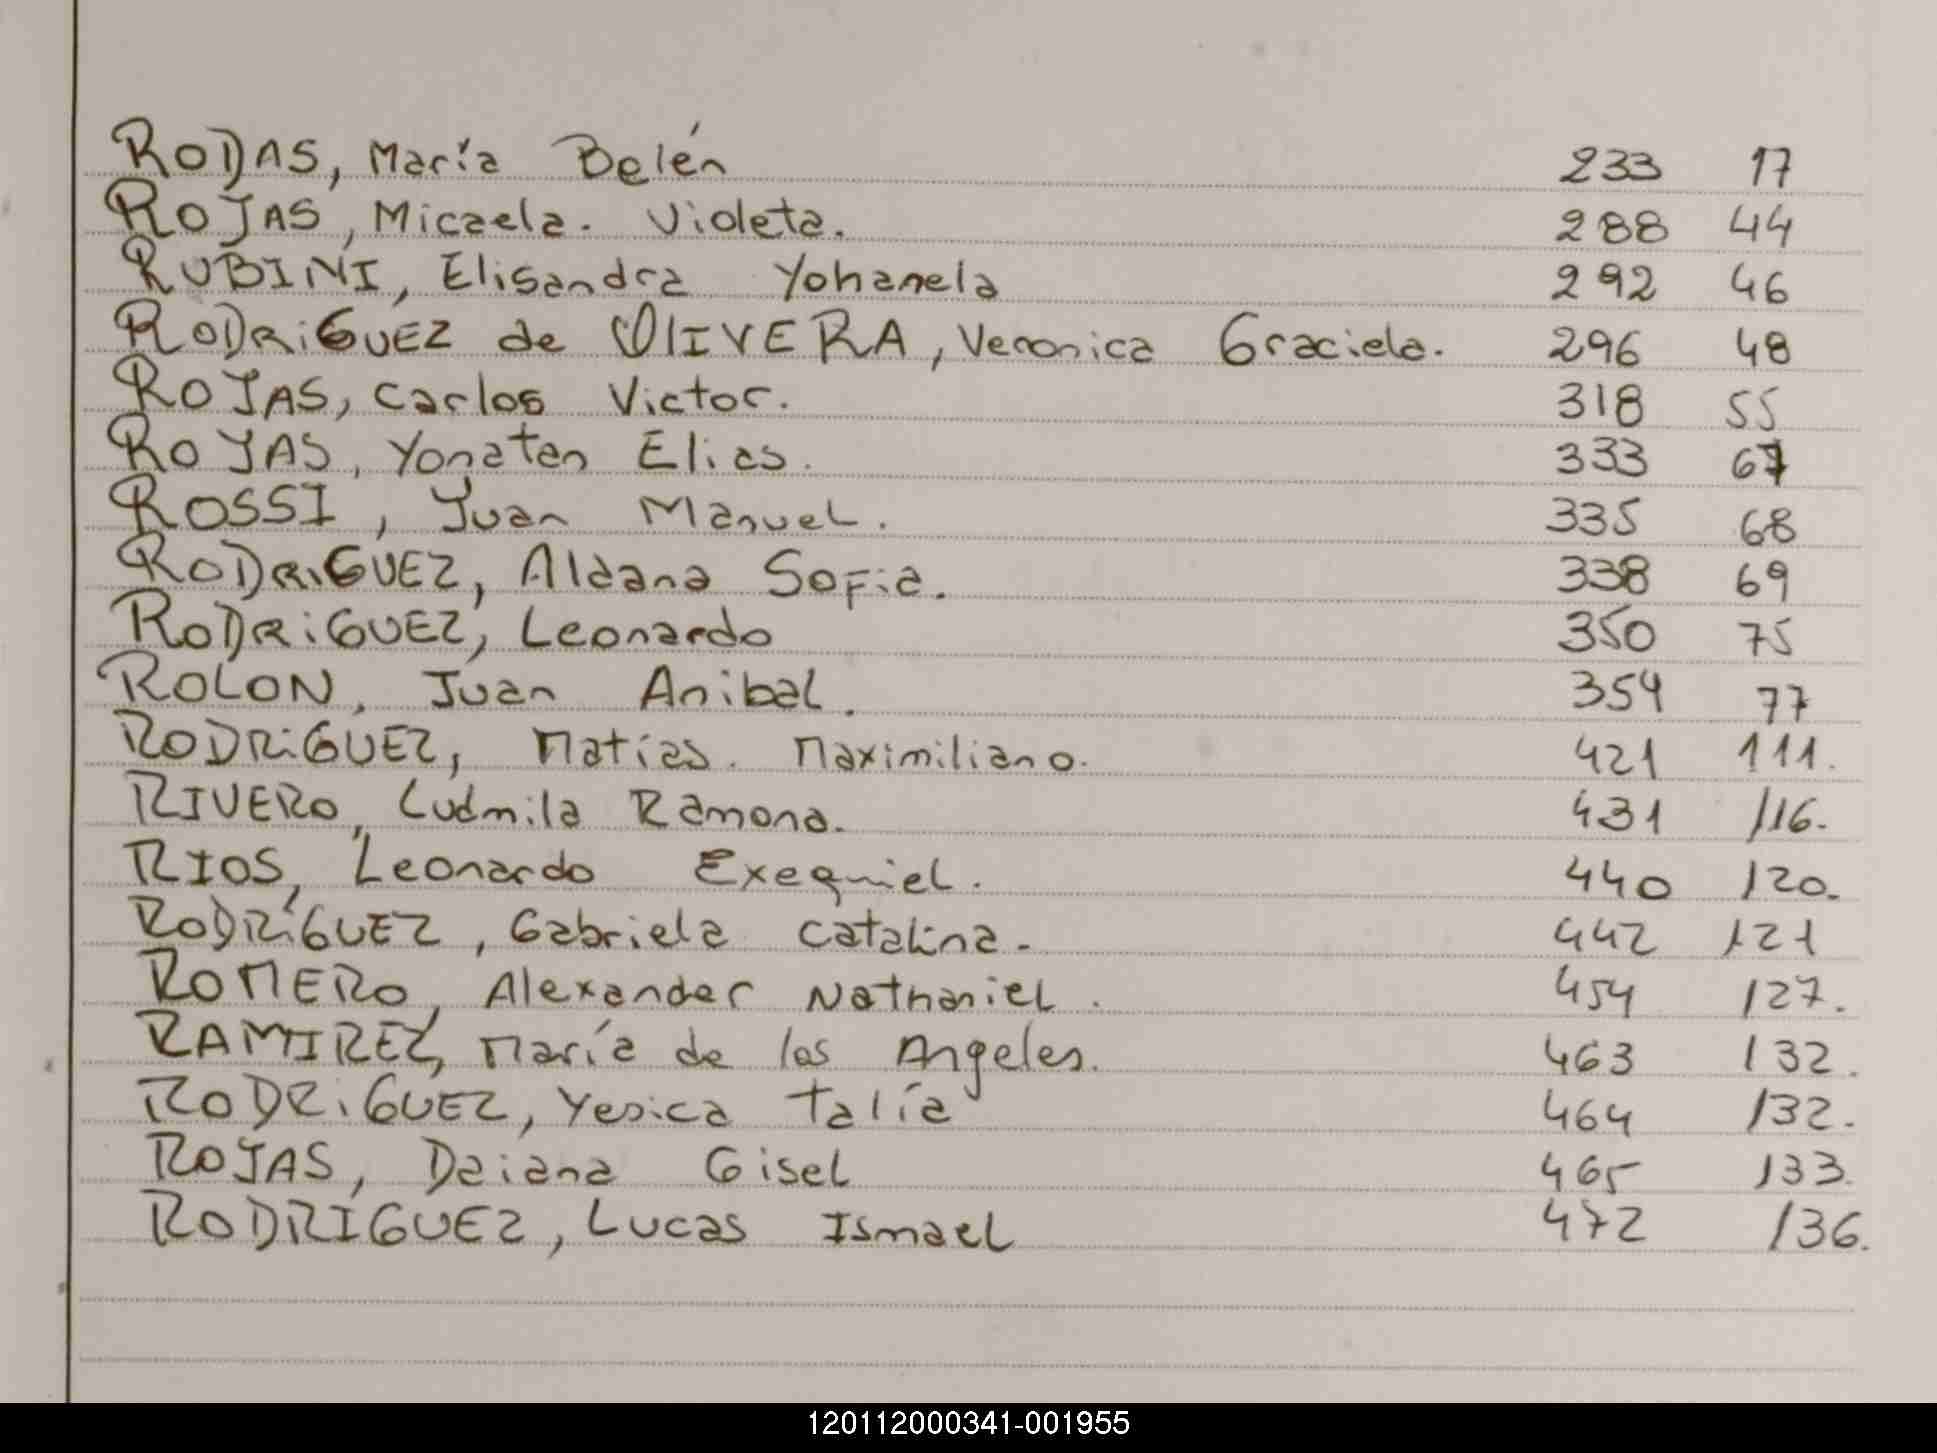 RODAS, María Belén 233 17
ROJAS, Micaela. Violeta. 288 44
RUBINI, Elisandra Yohanela 292 46
RODRiGUEZ de OLIVERA, Veronica Graciela. 296 48
ROJAS, Carlos Victor. 318 55
ROJAS, Yonatan Elias. 333 67
ROSSI, Juan Manuel. 335 68
RODRiGUEZ, Aldana Sofia. 338 69
RODRiGUEZ, Leonardo 350 75
ROLON, Juan Anibal. 354 77
RODRiGUEZ, Matías. Maximiliano. 421 111.
RIVERO, Ludmila Ramona. 431 116.
RIOS, Leonardo Exequiel. 440 120.
RODRÍGUEZ, Gabriela Catalina. 442 121
ROMERO, Alexander Nathaniel. 454 127.
RAMIREZ, María de los Angeles. 463 132.
RODRiGUEZ, Yesica Talía 464 132.
ROJAS, Daiana Gisel 465 133.
RODRIGUEZ, Lucas Ismael 472 136.
120112000341-001955